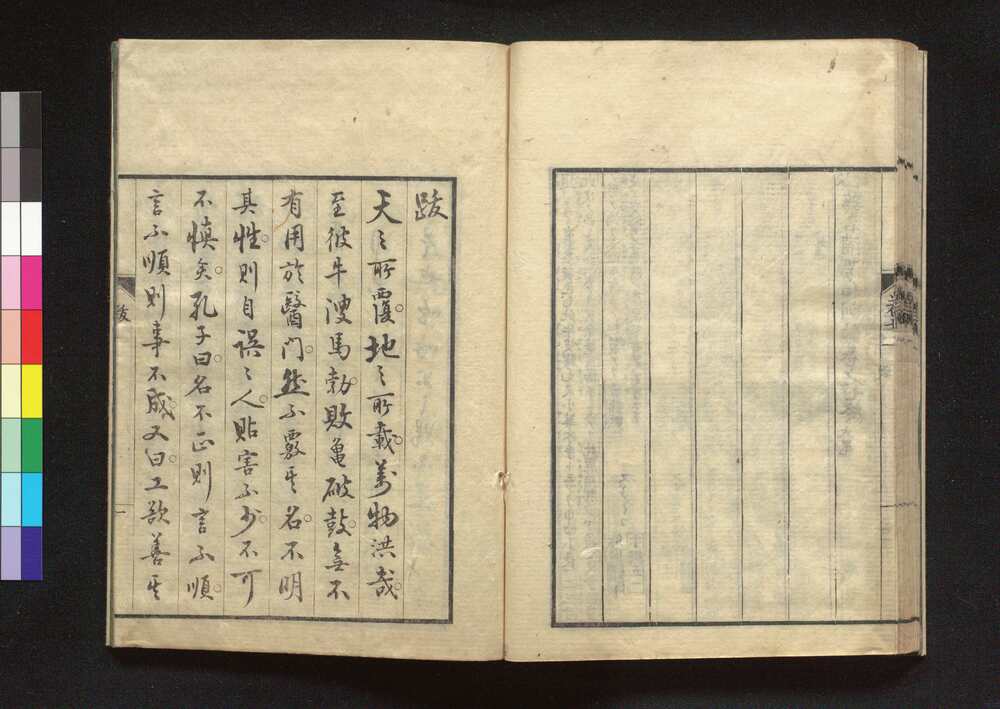 跋
天之所覆。地之所載。萬物洪哉。
至彼牛溲馬勃。敗亀破鼓。無不
有用於醫門。然不覈其名。不明
其性。則自誤〻人。貽害不少。不可
不慎矣。孔子曰。名不正則言不順。
言不順則事不成。又曰。工欲善其
跋
一